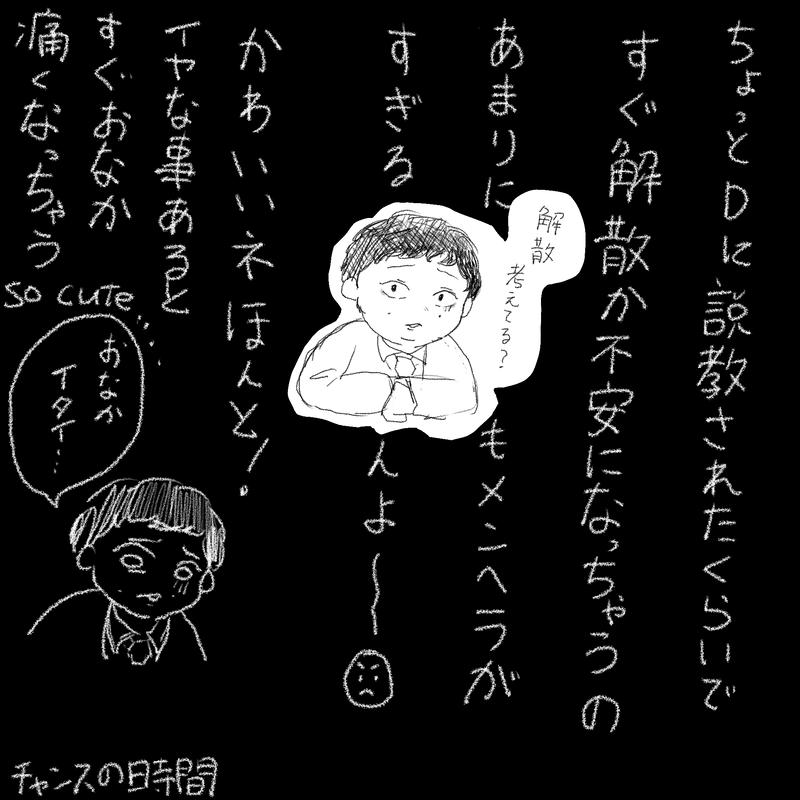 ちょっとDに説教されたくらいで
すぐ解散か不安になっちゃうの
あまりに
もメンヘラが
すぎる
んよ〜
解散
考えてる?
かわいいネほんと!
イヤな事あると
すぐおなか
痛くなっちゃう
so cute
おなか
イタイ…
チャンスの時間